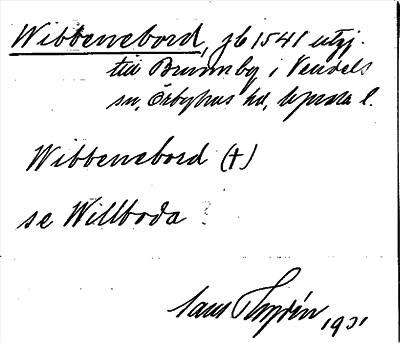 Wibbenebord, jb 1541 utgj.
till Brunnby i Vendels
sn, Örbyhus hd, Upsala l.
Wibbenebord (†)
se Willboda
1931